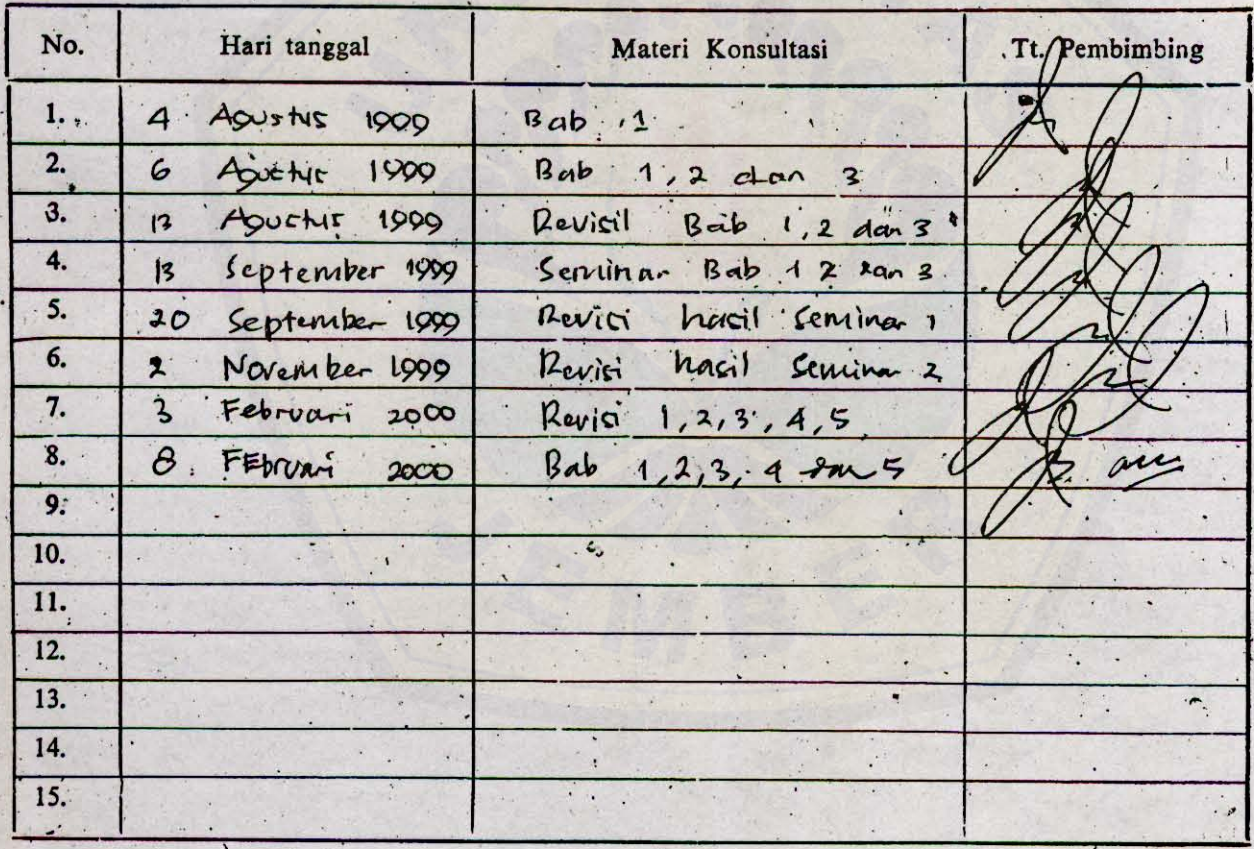 No. Hari tanggal Materi Konsultasi Tt. Pembimbing
1. 4 Agustus 1999 Bab 1
2. 6 Agustus 1999 Bab 1, 2 dan 3
3. 13 Agustus 1999 Revisil Bab 1, 2 dan 3
4. 13 September 1999 Seminar Bab 1 2 dan 3
5. 20 September 1999 Revisi hasil Seminar 1
6. 2 November 1999 Revisi hasil Seminar 2
7. 3 Februari 2000 Revisi 1, 2, 3, 4, 5
8. 8 FEbruari 2000 Bab 1, 2, 3, 4 dan 5
9.
10.
11.
12.
13.
14.
15.